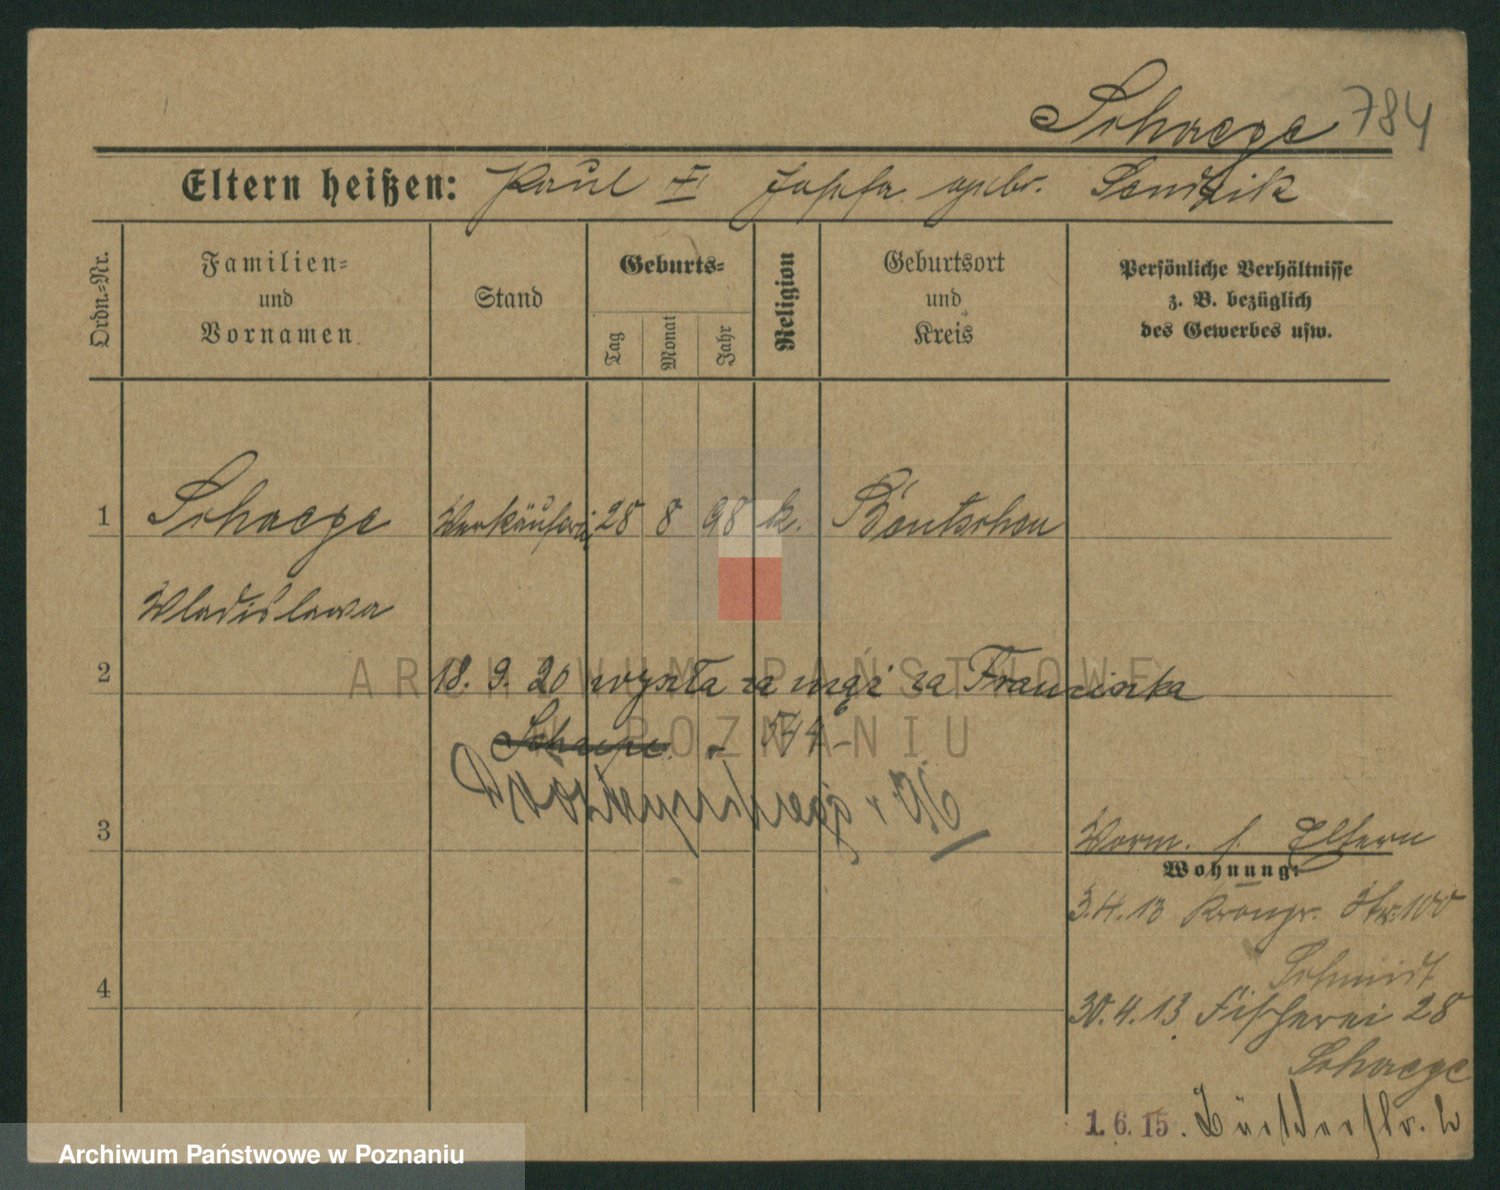 Schaepe 784
Eltern heißen: Paul II Josefa gebr. Sendzik
Ordn.-Nr.
Familien-
und
Vornamen
Stand
Geburts-
Tag
Monat
Jahr
Religion
Geburtsort
und
Kreis
Persönliche Verhältnisse
z. B. bezüglich
des Gewerbes usw.
1 Schaepe Verkäuferin 28 8 98 k. Bentschen
Wladislawa
2 18. 9. 20 wyszła za mąż za Franciszka
Schaepe
3
Vorm. s. Eltern
Wohnung:
3.4.13 Kronpr. Str. 100
Schmidt
4
30.4.13 Fischerei 28
Schaepe
1. 6. 15.
ARCHIWUM PAŃSTWOWE
W POZNANIU
Archiwum Państwowe w Poznaniu